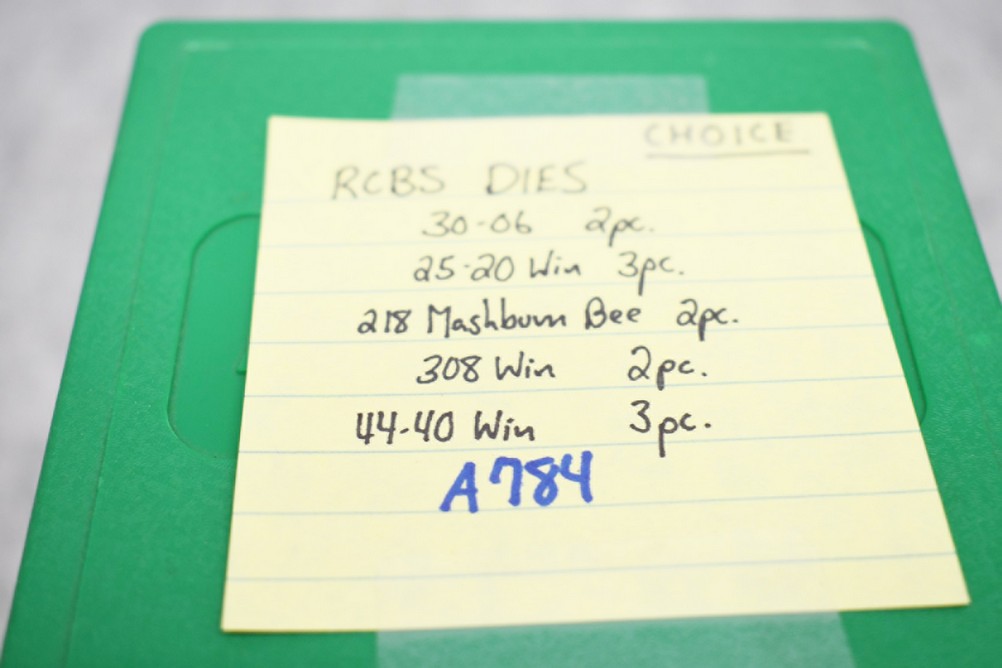 CHOICE
RCBS DIES
30-06 2pc.
25-20 Win 3pc.
218 Mashburn Bee 2pc.
308 Win 2pc.
44-40 Win 3pc.
A784